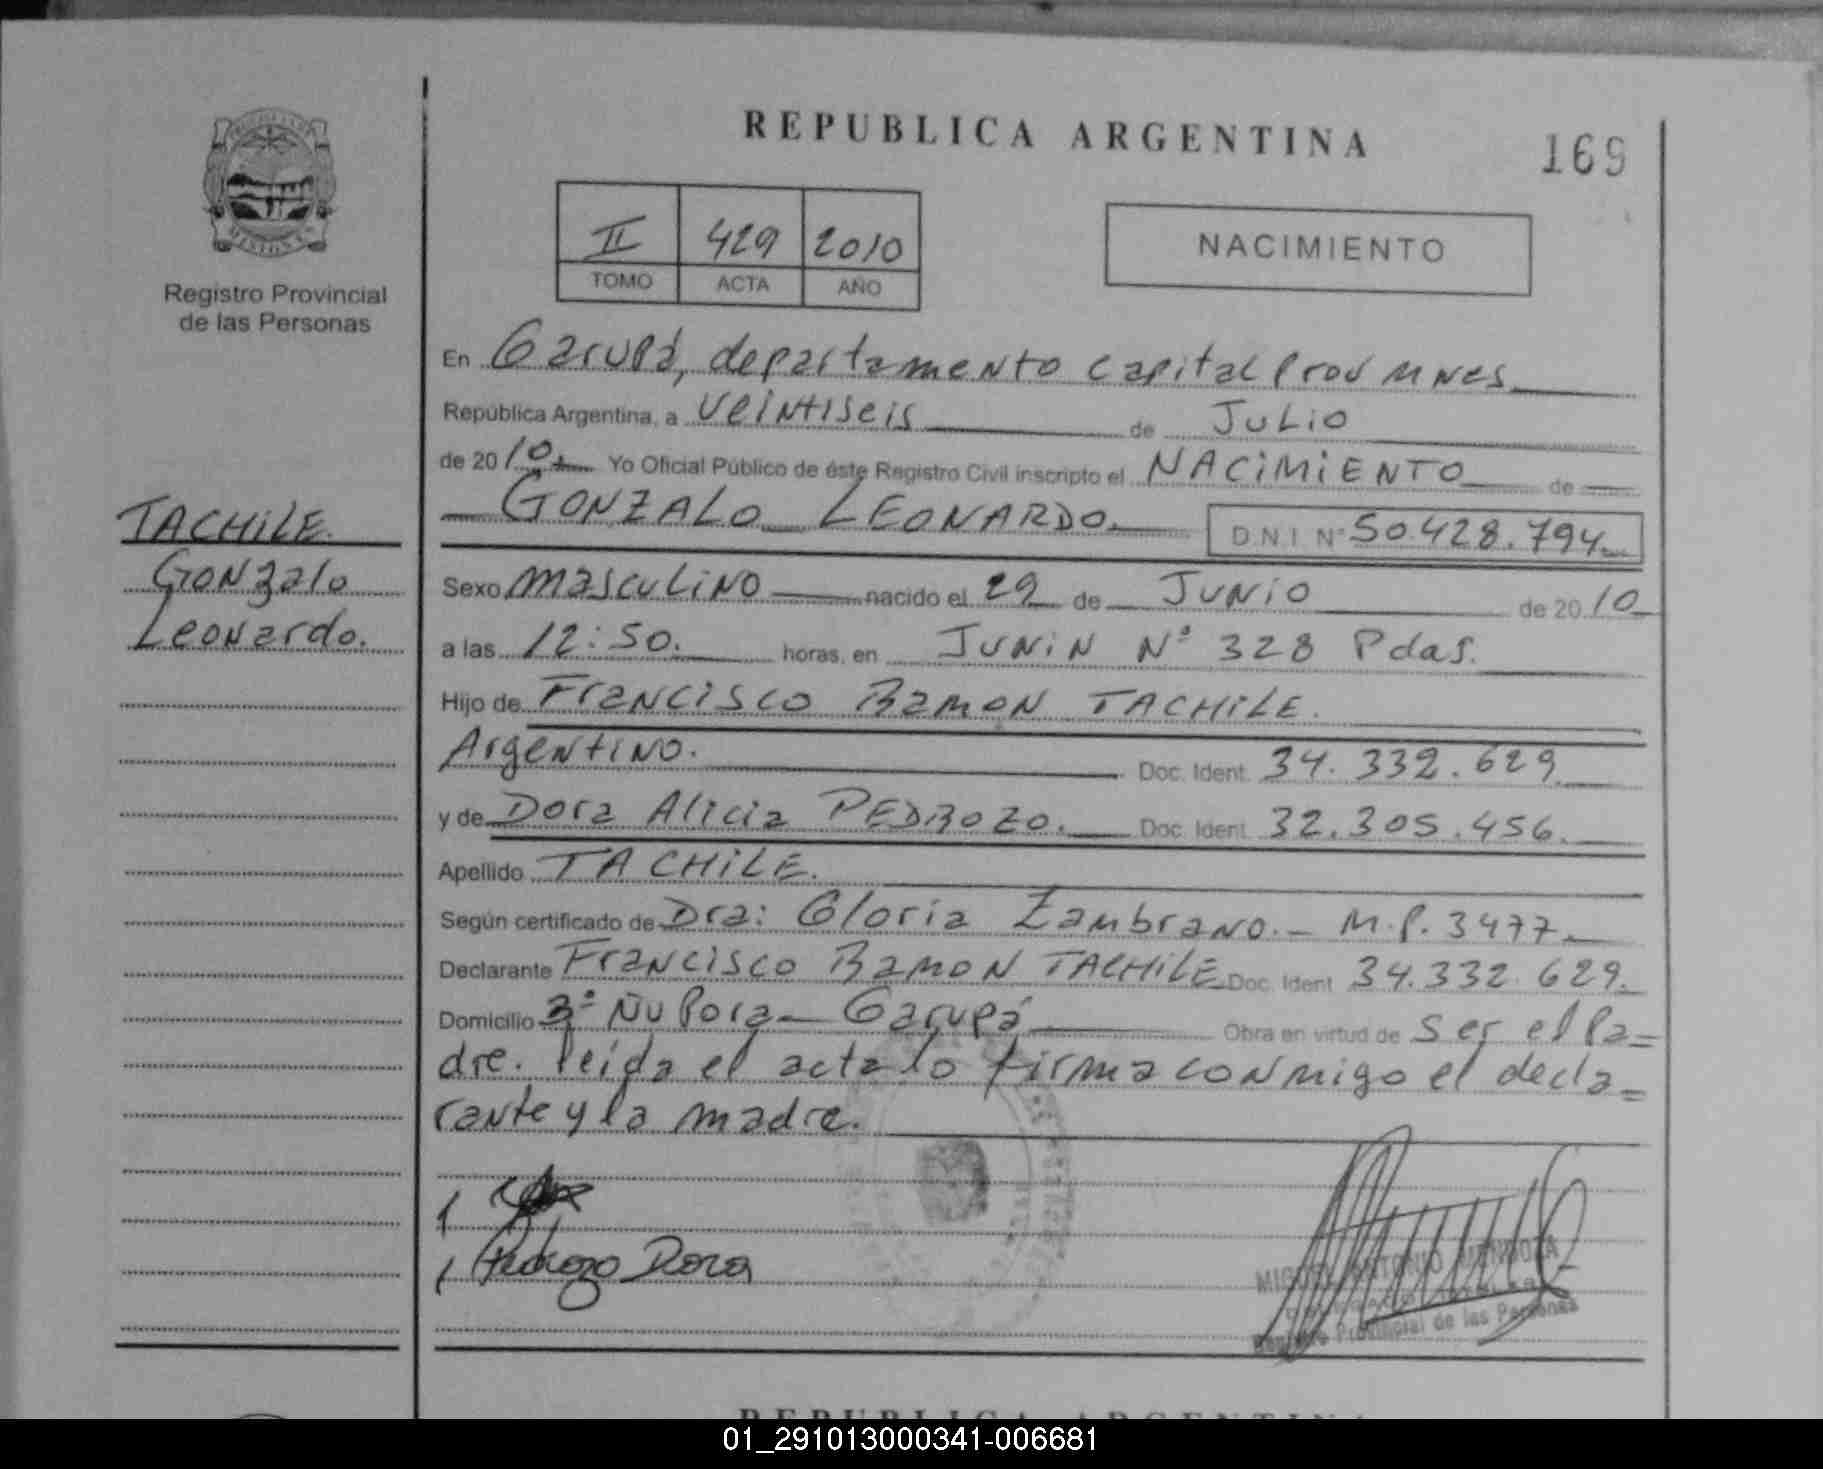 REPUBLICA ARGENTINA
169
MISIONES
Registro Provincial
de las Personas
II 429 2010
TOMO ACTA AÑO
NACIMIENTO
En Garupá, departamento Capital Prov Mnes
República Argentina, a veintiseis de Julio
de 2010 Yo Oficial Público de éste Registro Civil inscripto el NACIMIENTO de
GONZALO LEONARDO. D.N.I. Nº 50.428.794
TACHILE.
Gonzalo
Leonardo.
Sexo masculino nacido el 29 de Junio de 2010
a las 12:50. horas, en Junin Nº 328 Pdas.
Hijo de Francisco Ramon TACHILE.
Argentino. Doc. Ident. 34.332.629
y de Dora Alicia PEDROZO. Doc. Ident. 32.305.456.
Apellido TACHILE.
Según certificado de Dra: Gloria Zambrano. - M.P. 3477
Declarante Francisco Ramon TACHILE Doc. Ident 34.332.629.
Domicilio Bº Ñu Pora - Garupá Obra en virtud de ser el Pa=
dre. leida el acta lo firma conmigo el decla=
rante y la madre.
Pedrozo Dora
MIGUEL ANTONIO MENDOZA
Registro Provincial de las Personas
REPUBLICA ARGENTINA
01_291013000341-006681